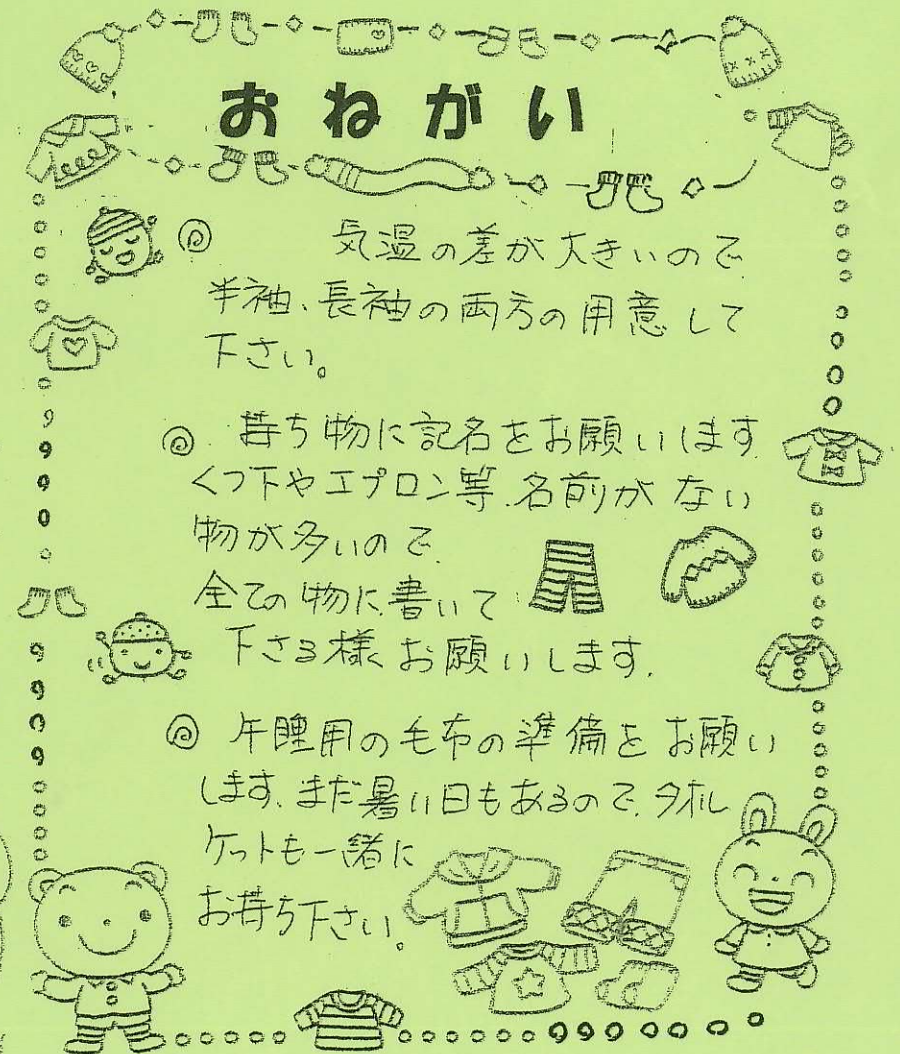 おねがい
気温の差が大きいので
半袖、長袖の両方の用意して
下さい。
持ち物に記名をお願いします
くつ下やエプロン等、名前がない
物が多いので
全ての物に書いて
下さる様、お願いします。
午睡用の毛布の準備をお願い
します。まだ暑い日もあるので、タオル
ケットも一緒に
お持ち下さい。